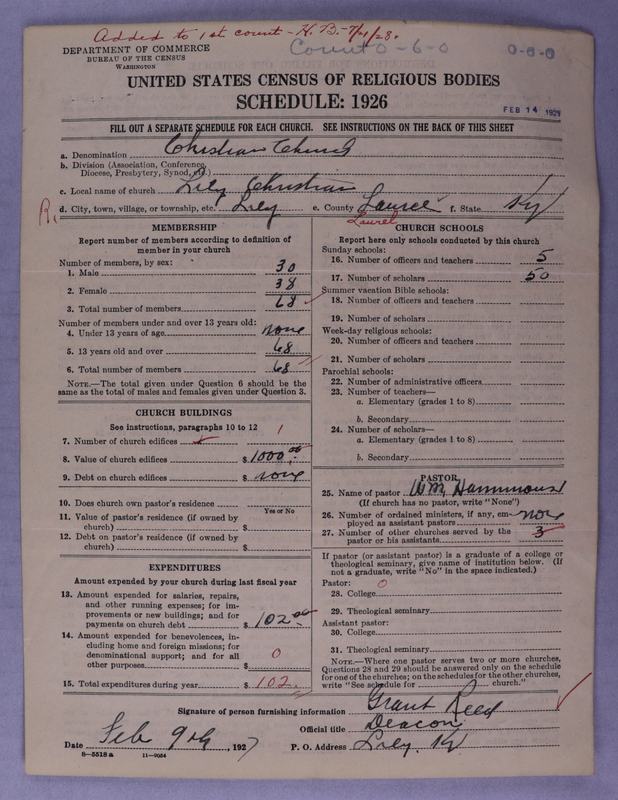 Added to 1st count - H. B. - 7/21/28.
Count 0-6-0
0-6-0
DEPARTMENT OF COMMERCE
BUREAU OF THE CENSUS
WASHINGTON
UNITED STATES CENSUS OF RELIGIOUS BODIES
SCHEDULE: 1926
FEB 14 192
FILL OUT A SEPARATE SCHEDULE FOR EACH CHURCH. SEE INSTRUCTIONS ON THE BACK OF THIS SHEET
a. Denomination Christian Church
b. Division (Association, Conference, Diocese, Presbytery, Synod, etc.)
c. Local name of church Lily Christian
R. d. City, town, village, or township, etc. Lily e. County Laurel f. State Ky
Laurel
MEMBERSHIP
Report number of members according to definition of
member in your church
Number of members, by sex:
1. Male 30
2. Female 38
3. Total number of members 68
Number of members under and over 13 years old:
4. Under 13 years of age none
5. 13 years old and over 68
6. Total number of members 68
NOTE.—The total given under Question 6 should be
same as the total of males and females given under Question 3.
CHURCH BUILDINGS
See instructions, paragraphs 10 to 12
7. Number of church edifices 1
8. Value of church edifices $ 1000.00
9. Debt on church edifices $ none
10. Does church own pastor's residence
Yes or No
11. Value of pastor's residence (if owned by
church) $
12. Debt on pastor's residence (if owned by
church) $
EXPENDITURES
Amount expended by your church during last fiscal year
13. Amount expended for salaries, repairs,
and other running expenses; for im-
provements or new buildings; and for
payments on church debt $ 102.00
14. Amount expended for benevolences, in-
cluding home and foreign missions; for
denominational support; and for all
other purposes $ 0
15. Total expenditures during year $ 102.
CHURCH SCHOOLS
Report here only schools conducted by this church
Sunday schools:
16. Number of officers and teachers 5
17. Number of scholars 50
Summer vacation Bible schools:
18. Number of officers and teachers
19. Number of scholars
Week-day religious schools:
20. Number of officers and teachers
21. Number of scholars
Parochial schools:
22. Number of administrative officers
23. Number of teachers—
a. Elementary (grades 1 to 8)
b. Secondary
24. Number of scholars—
a. Elementary (grades 1 to 8)
b. Secondary
PASTOR
25. Name of pastor Wm Hammons
(If church has no pastor, write "None")
26. Number of ordained ministers, if any, em-
ployed as assistant pastors none
27. Number of other churches served by the
pastor or his assistants 3
If pastor (or assistant pastor) is a graduate of a college or
theological seminary, give name of institution below. (If
not a graduate, write "No" in the space indicated.)
Pastor: 0
28. College
29. Theological seminary
Assistant pastor:
30. College
31. Theological seminary
NOTE.—Where one pastor serves two or more churches,
Questions 28 and 29 should be answered only on the schedule
for one of the churches; on the schedules for the other churches,
write "See schedule for church."
Signature of person furnishing information Grant Reed
Official title Deacon
Date Feb 9th, 1927 P. O. Address Lily, Ky
8-5518 a 11-9084